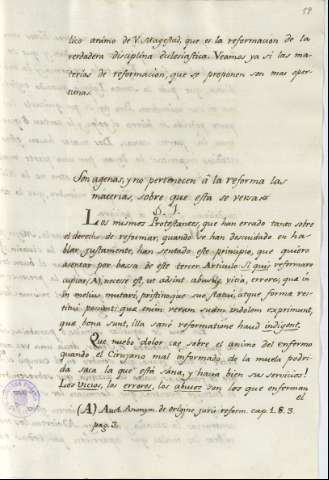 59
lico animo de V. Magestad, que es la reformacion de la
verdadera disciplina eclesiastica. Veamos ya si las ma-
terias de reformacion, que se proponen son mas opor-
tunas.
Son agenas, y no pertenecen â la reforma las
materias, sobre que esta se versa.
§. I.
Los mismos Protestantes, que han errado tanto sobre
el derecho de reformar, quando se han descuidado en ha-
blar justamente, han sentado este principio, que quiero
asentar por bassa de este tercer Articulo. Si quis reformare
cupiat (A), necesse est, ut adsint abusus, vicia, errores, quæ in
in melius mutari, pristinoque suo statui, atque forma res-
titui possint: quæ enim verum suden indolem exprimunt,
quæ bona sunt, illa sanè reformatione haud indigent.
Que nuebo dolor cae sobre el animo del enfermo
quando el Cirujano mal informado, de la muela podri-
da saca la que está sana, y hacia bien sus servicios!
Los vicios, los errores, los abusos son los que enferman
el
(A) Auct. Anonym. de origine juris reform. cap. 1. §. 3.
pag. 3.